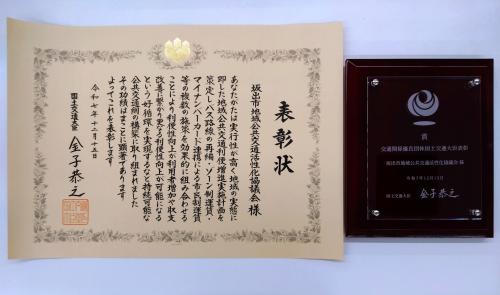 表彰状
坂出市地域公共交通活性化協議会 様
あなたがたは実行性が高く地域の実態に
即した地域公共交通利便増進実施計画を
策定しバス路線の再編・ゾーン制運賃・
マイナンバーカード連携による市民割運賃
等の複数の施策を効果的に組み合わせる
ことにより利便性向上が利用者増加や収支
改善に繋がり更なる利便性向上が可能になる
という好循環を実現するなど持続可能な
公共交通網の構築に取り組まれました
その功績はまことに顕著であります
よってこれを表彰します
令和七年十二月十五日
国土交通大臣 金子恭之
賞
交通関係優良団体国土交通大臣表彰
坂出市地域公共交通活性化協議会 様
令和7年12月15日
国土交通大臣 金子恭之